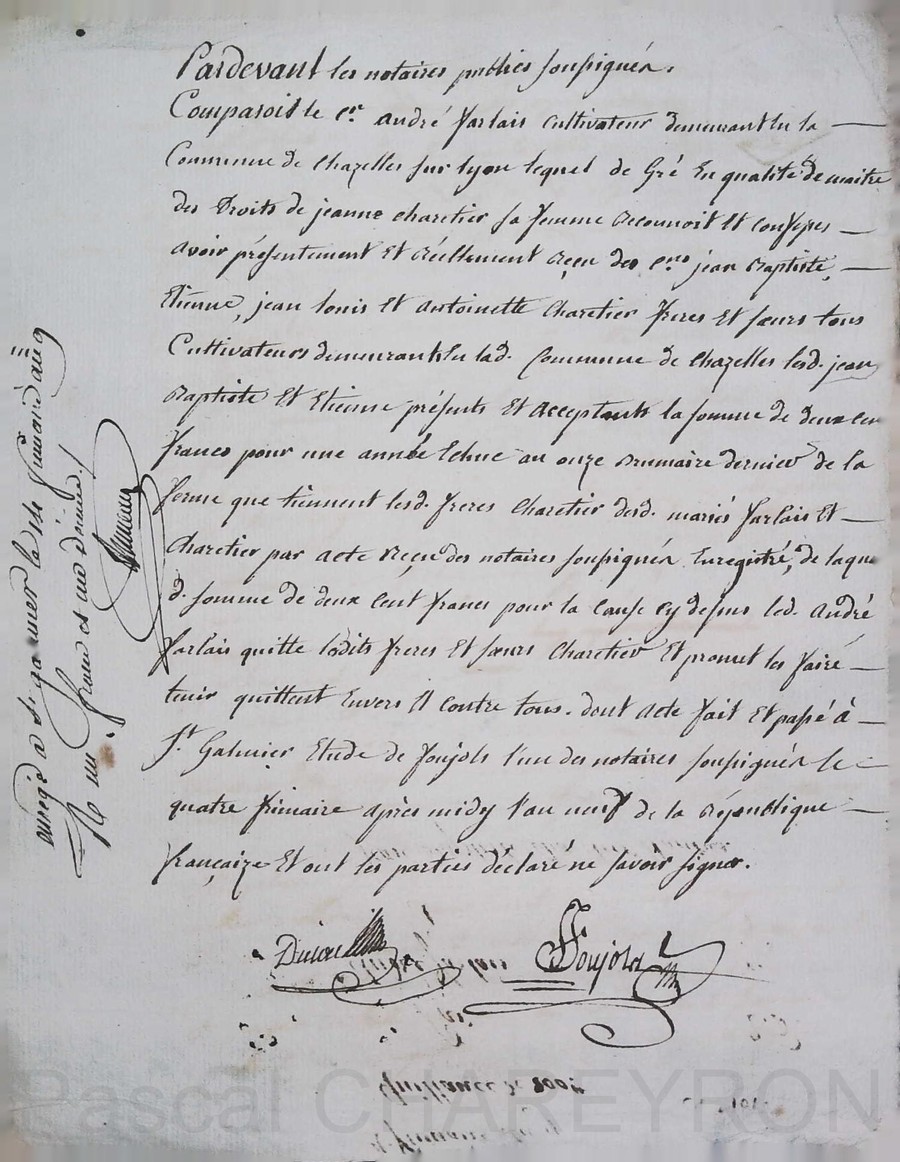 Pardevant les notaires publics soussignés.
Comparoit le cen. André Farlais Cultivateur demeurant en la
Commune de Chazelles sur lyon lequel de Gré En qualité de maitre
des Droits de jeanne charetier sa femme reconnoit Et confesse
avoir présentement Et réellement reçu des cens jean Baptiste,
Etienne, jean louis Et antoinette Charetier freres Et sœurs tous
Cultivateurs demeurants En lad. Commune de chazelles lesd. jean
Baptiste Et Etienne présents Et acceptants la somme de deux cen
francs pour une année Echue au onze Brumaire dernier de la
ferme que tiennent lesd. freres Charetier desd. mariés farlais Et
Charetier par acte reçu des notaires soussignés Enregistré, de laque
d. somme de deux Cent francs pour la Cause cy dessus led. André
farlais quitte lesdits freres Et sœurs Charetier Et promet les faire
tenir quittent Envers Et contre tous. dont acte fait Et passé à
St. Galmier Etude de Foujols l'un des notaires soussignés le
quatre frimaire après midy l'an neuf de la République
françaize Et ont les parties declaré ne savoir signer.
Foujols
quittance de 200
Enregé à St galmier le frimaire an 9
R un franc et un décime
Pascal CHAREYRON